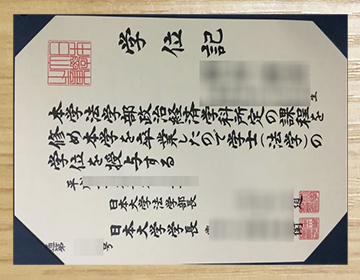 学位記
生
本学法学部政治経済学科所定の課程を
修め本学を卒業したので学士(法学)の
学位を授与する
平
日本大学法学部長
日本大学学長
第 号